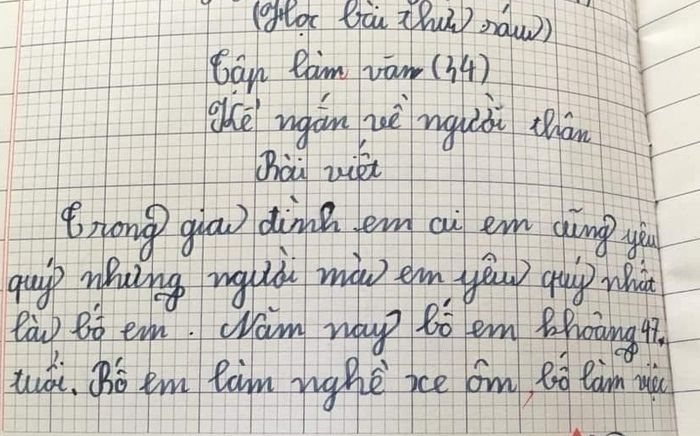 (Học bài thứ sáu)
Tập làm văn (34)
Kể ngắn về người thân
Bài viết
Trong gia đình em ai em cũng yêu
quý nhưng người mà em yêu quý nhất
là bố em. Năm nay bố em khoảng 47
tuổi. Bố em làm nghề xe ôm, bố làm việc